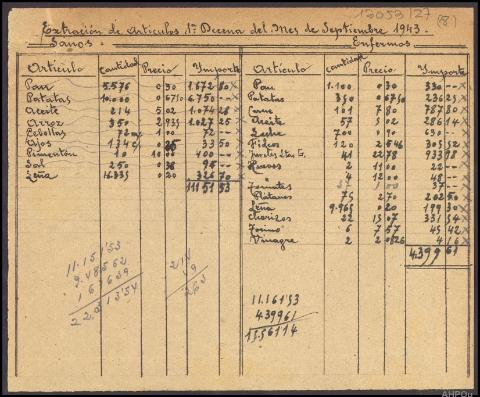 13053/27 (8)
Extración de Articulos 1ª Decena del Mes de Septiembre 1943.
Sanos. Enfermos
Articulo Cantidad Precio Importe
Pan 5.576 0 30 1.672 80
Patatas 10.000 0 6750 6.750 --
Aceite 214 5 02 1.074 28
Arroz 350 2 935 1.027 25
Cebollas 1 00 72 --
Ajos 33 50
Pimentón 10 00 400 --
Sal 250 0 38 95 --
Leña 16.335 0 20 326 70
11151 53
Articulo Cantidad Precio Importe
Pan 1.100 0 30 330 --
Patatas 350 0 6750 236 25
Carne 101 7 80 787 80
Aceite 57 5 02 286 14
Leche 700 0 90 630 --
Fideos 120 2 546 305 52
41 22 78 933 98
Huevos 2 11 00 22 --
" 4 12 00 48 --
37 1 00 37 --
Plátanos 75 2 70 202 50
Leña 9.965 0 20 199 30
Chorizos 22 15 07 331 54
Tocino 6 7 57 45 42
Vinagre 2 2 08 4 16
4.399 61
11.15 1'53
22.0
11.151'53
4.39961
15.561 14
AHPOu